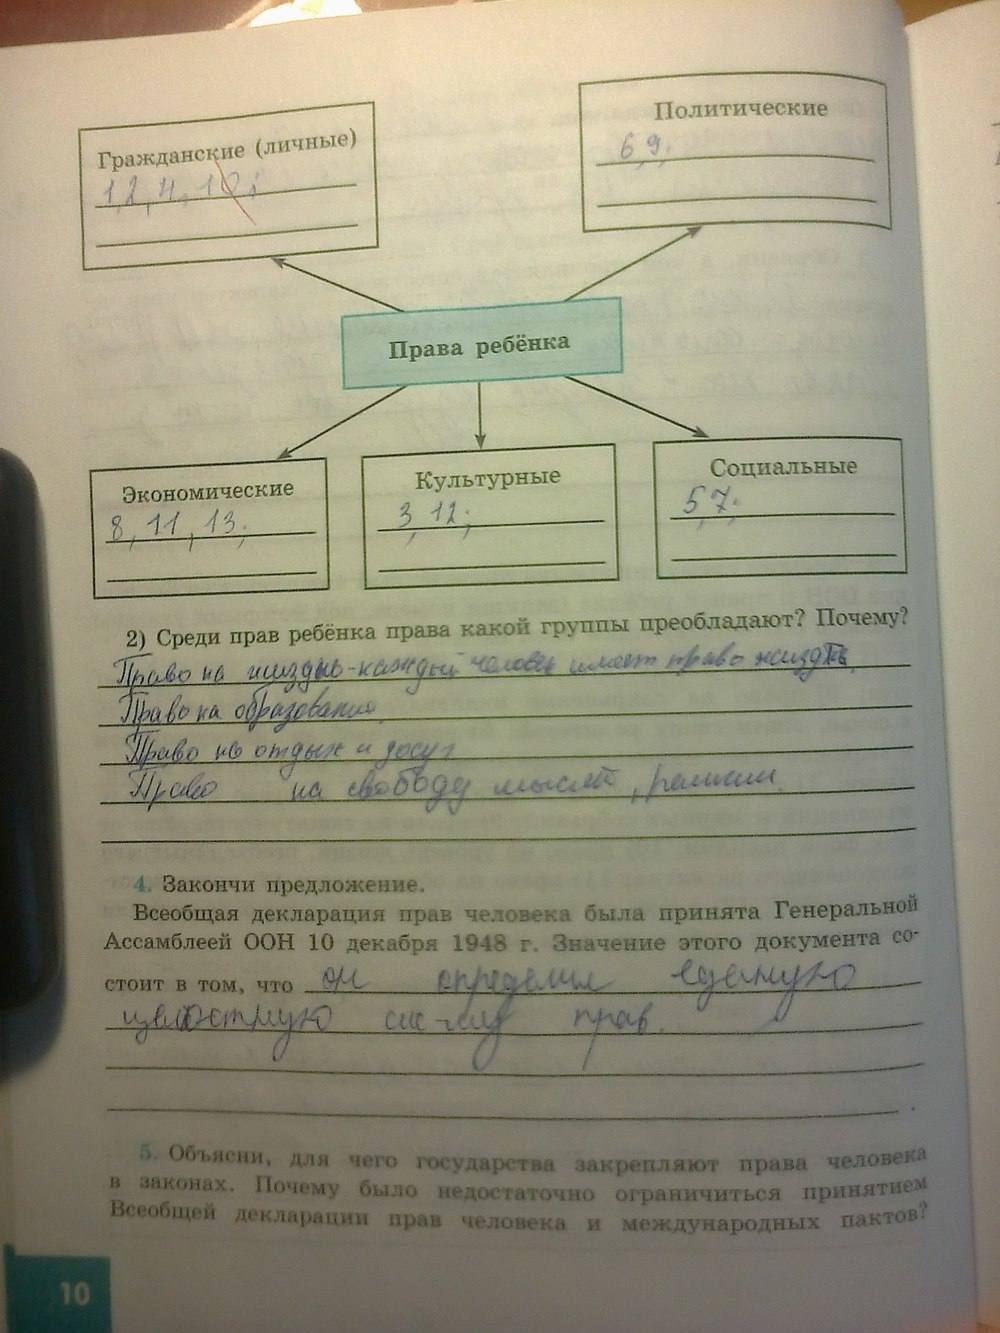 Гражданские (личные)
1,2,4,10;
Политические
6,9;
Права ребёнка
Экономические
8,11,13;
Культурные
3,12;
Социальные
5,7;
2) Среди прав ребёнка права какой группы преобладают? Почему?
Право на жизднь-каждый человек имеет право жиздть
Право на образование
Право на отдых и досуг
Право на свободу мыслей,
4. Закончи предложение.
Всеобщая декларация прав человека была принята Генеральной
Ассамблеей ООН 10 декабря 1948 г. Значение этого документа со-
стоит в том, что он определил единую
целостную прав.
5. Объясни, для чего государства закрепляют права человека
в законах. Почему было недостаточно ограничиться принятием
Всеобщей декларации прав человека и международных пактов?
10